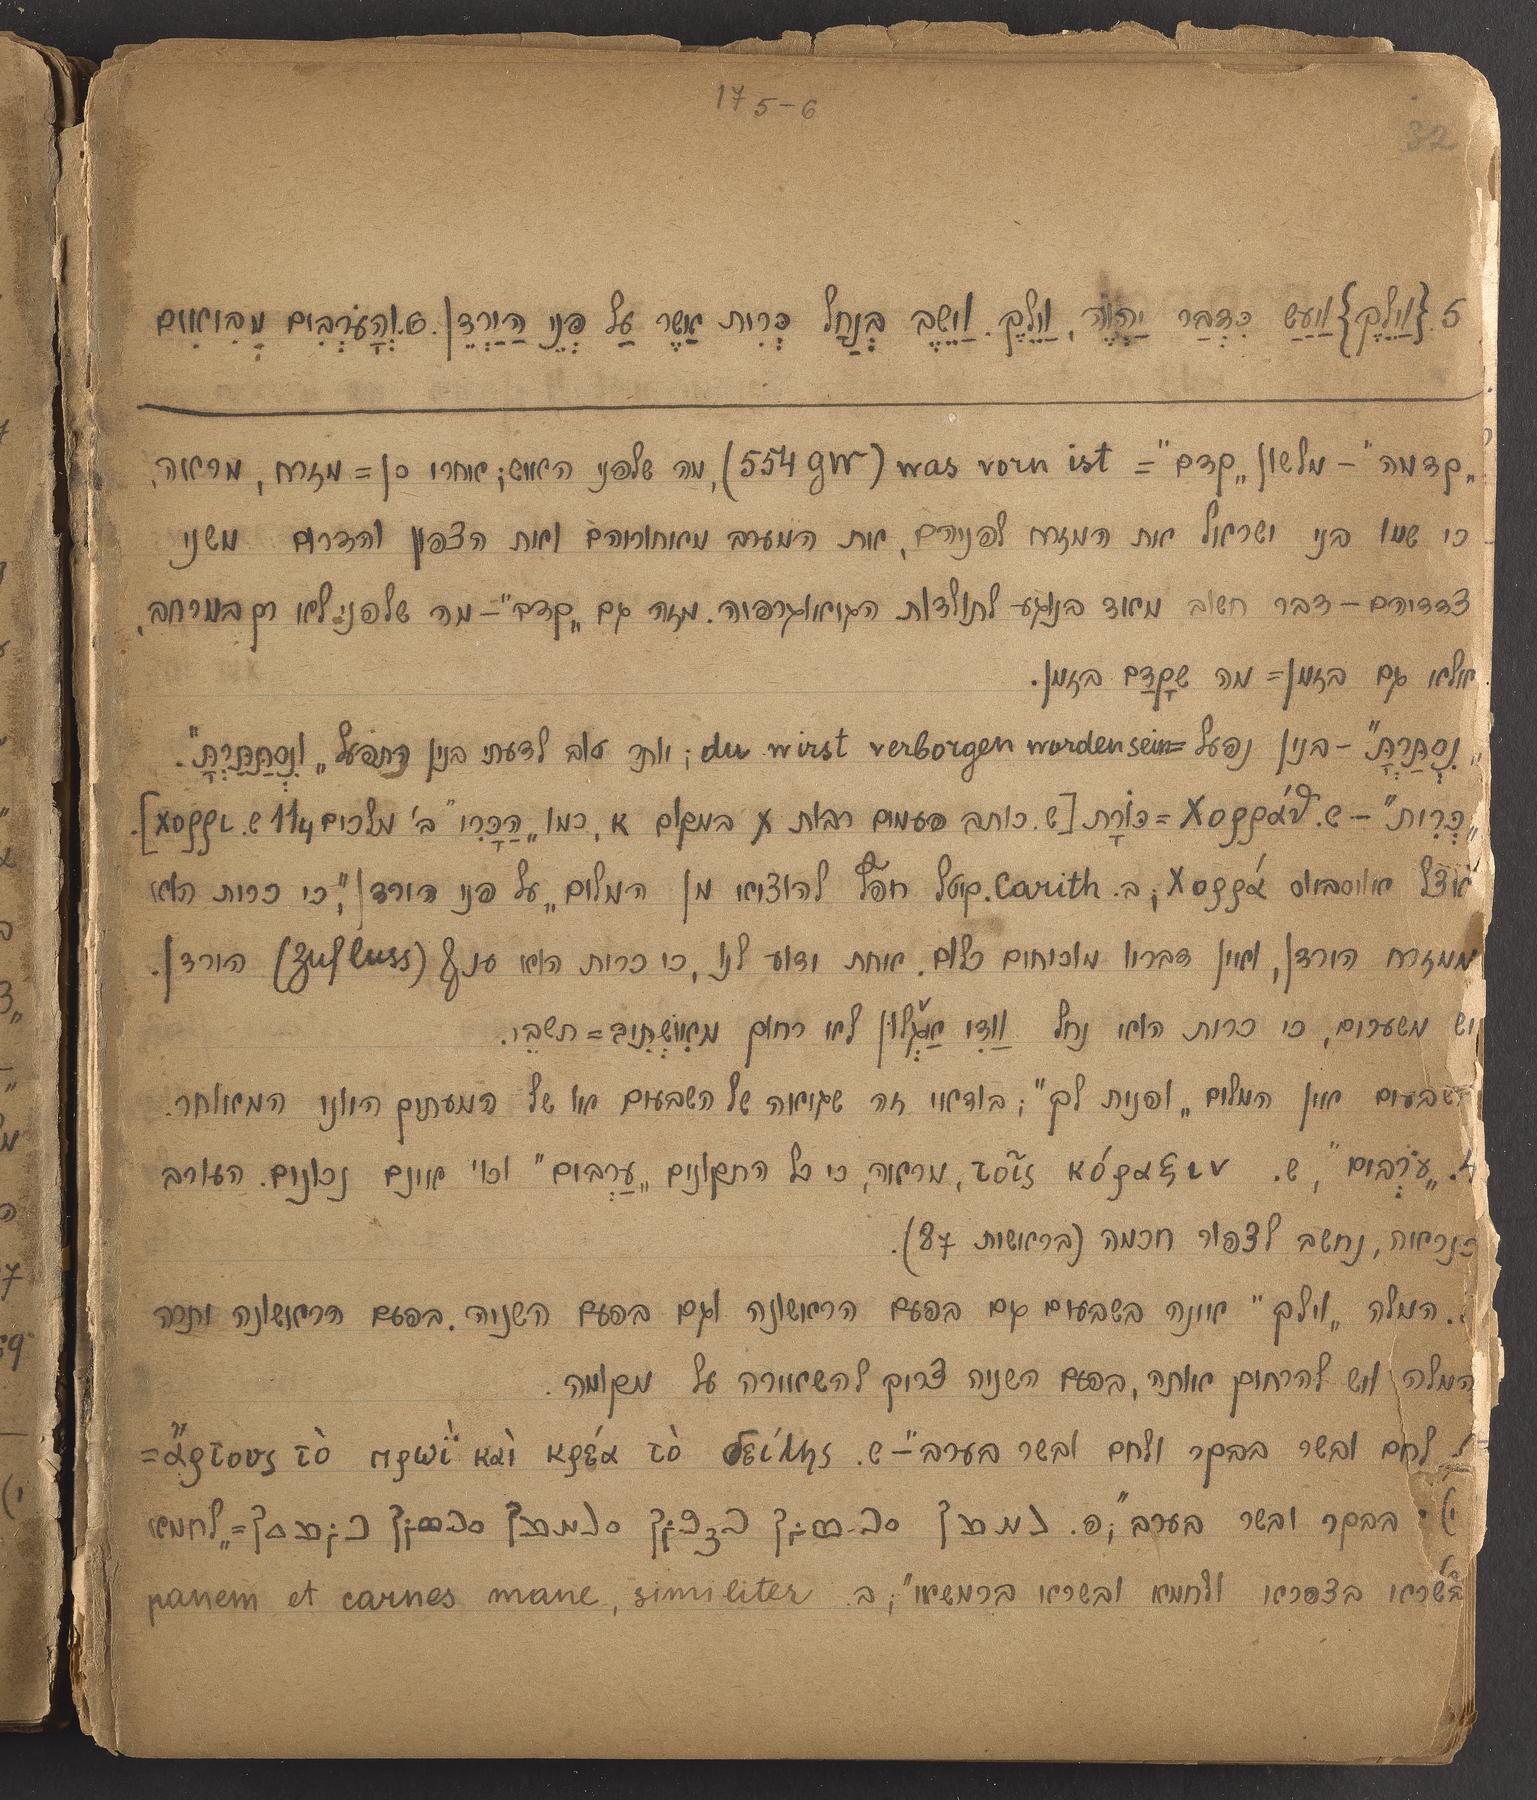 17 5-6
32
5. {וַיֵּלֶךְ} וַיַּעַשׂ כִּדְבַר יַהְוֶה, וַיֵּלֶךְ. וַיֵּשֶׁב בְּנַחַל כְּרִית אֲשֶׁר עַל פְּנֵי הַיַּרְדֵּן. 6. וְהָעֹרְבִים מְבִיאִים
„קדמה" – מלשון „קדם" = was vorn ist (554 GW), מה שלפני האיש; אחרי כן = מזרח, מראה,
כי שמו בני ישראל את המזרח לפניהם, את המערב מאחוריהם ואת הצפון והדרום משני
צדדיהם – דבר חשוב מאוד בנוגע לתולדות הגיאוגרפיה. מזה גם „קדם" – מה שלפני לא רק במרחב,
אלא גם בזמן = מה שֶׁקָּדַם בזמן.
„נִסְתַּרְתָּ" – בנין נפעל = du wirst verborgen worden sein; יותר טוב לדעתי בנין התפעל „וְנִסְתַּתַּרְתָּ".
„כְּרִית" – ש. Χορράθ = כּוֹרָת [ש. כותב פעמים רבות χ במקום κ, כמו „הַכָּרִי" ב' מלכים 11 4 ש. χορρι].
אצל איוסביוס Χορρά; ב. Carith. קיטל חפץ להוציא מן המלים „על פני הירדן", כי כרית היא
ממזרח הירדן, ואין דבריו מוכיחים כלום. אחת ידוע לנו, כי כרית היא ענף (Zufluss) הירדן.
יש משערים, כי כרית היא נחל וַדִי עַגְ'לוּן לא רחוק מאִישְׁתִּיבּ = תשבֵּי.
בשבעים אין המלים „ופנית לך"; בודאי זה שגיאה של השבעים או של המעתיק היוני המאוחר.
6. „עֹרְבִים", ש. τοῖς κόραξιν, מראה, כי כל התקונים „עַרְבִים" וכו' אינם נכונים. העורב
כנראה, נחשב לצפור חכמה (בראשית 8 7).
5. המלה „וילך" אינה בשבעים גם בפעם הראשונה וגם בפעם השניה. בפעם הראשונה יתרה
המלה ויש להרחיק אותה, בפעם השניה צריך להשאירה על מקומה.
לחם ובשר בבקר ולחם ובשר בערב" – ש. ἄρτους τὸ πρωῒ καὶ κρέα τὸ δείλης =
בבקר ובשר בערב"; פ. = „לחמא
ובשרא בצפרא ולחמא ובשרא ברמשא"; ב. panem et carnes mane, similiter